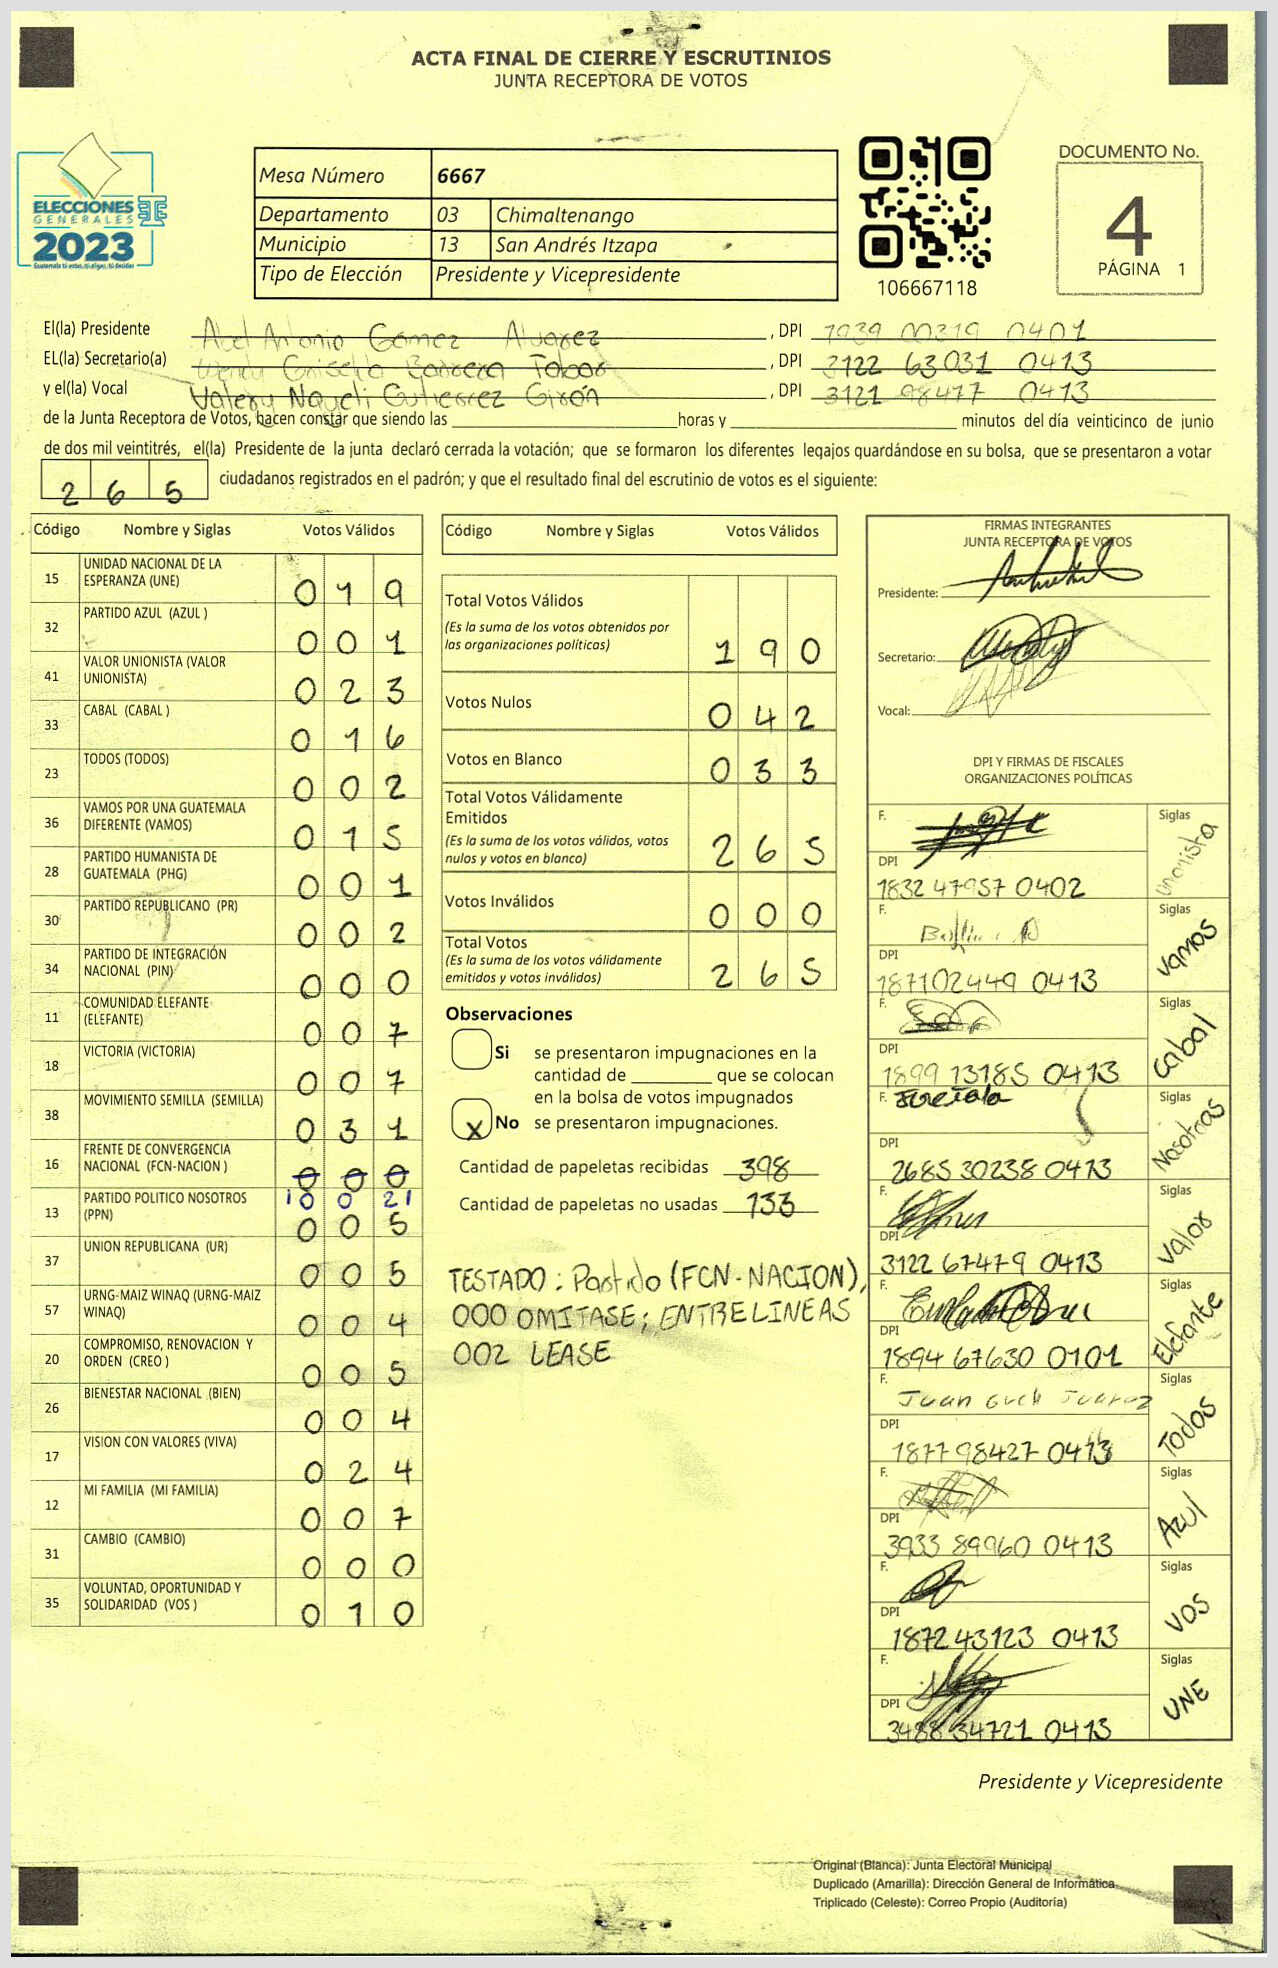 ACTA FINAL DE CIERRE Y ESCRUTINIOS
JUNTA RECEPTORA DE VOTOS
ELECCIONES
GENERALES
2023
Mesa Número 6667
Departamento 03 Chimaltenango
Municipio 13 San Andrés Itzapa
Tipo de Elección Presidente y Vicepresidente
106667118
DOCUMENTO No.
4
PÁGINA 1
El(la) Presidente Abel Antonio Gómez Alvarez , DPI 1939 00319 0401
EL(la) Secretario(a) Wendy Griselda Barrera Tobar , DPI 3122 63031 0413
y el(la) Vocal Valery Nayeli Gutierrez Girón , DPI 3121 98477 0413
de la Junta Receptora de Votos, hacen constar que siendo las horas y minutos del día veinticinco de junio
de dos mil veintitrés, el(la) Presidente de la junta declaró cerrada la votación; que se formaron los diferentes legajos guardándose en su bolsa, que se presentaron a votar
265 ciudadanos registrados en el padrón; y que el resultado final del escrutinio de votos es el siguiente:
Código Nombre y Siglas Votos Válidos
15 UNIDAD NACIONAL DE LA ESPERANZA (UNE) 019
32 PARTIDO AZUL (AZUL ) 001
41 VALOR UNIONISTA (VALOR UNIONISTA) 023
33 CABAL (CABAL ) 016
23 TODOS (TODOS) 002
36 VAMOS POR UNA GUATEMALA DIFERENTE (VAMOS) 015
28 PARTIDO HUMANISTA DE GUATEMALA (PHG) 001
30 PARTIDO REPUBLICANO (PR) 002
34 PARTIDO DE INTEGRACIÓN NACIONAL (PIN) 000
11 COMUNIDAD ELEFANTE (ELEFANTE) 007
18 VICTORIA (VICTORIA) 007
38 MOVIMIENTO SEMILLA (SEMILLA) 031
16 FRENTE DE CONVERGENCIA NACIONAL (FCN-NACION ) 000
10 0 21
13 PARTIDO POLITICO NOSOTROS (PPN) 005
37 UNION REPUBLICANA (UR) 005
57 URNG-MAIZ WINAQ (URNG-MAIZ WINAQ) 004
20 COMPROMISO, RENOVACION Y ORDEN (CREO ) 005
26 BIENESTAR NACIONAL (BIEN) 004
17 VISION CON VALORES (VIVA) 024
12 MI FAMILIA (MI FAMILIA) 007
31 CAMBIO (CAMBIO) 000
35 VOLUNTAD, OPORTUNIDAD Y SOLIDARIDAD (VOS ) 010
Código Nombre y Siglas Votos Válidos
Total Votos Válidos 190
(Es la suma de los votos obtenidos por las organizaciones políticas)
Votos Nulos 042
Votos en Blanco 033
Total Votos Válidamente Emitidos 265
(Es la suma de los votos válidos, votos nulos y votos en blanco)
Votos Inválidos 000
Total Votos 265
(Es la suma de los votos válidamente emitidos y votos inválidos)
Observaciones
Si se presentaron impugnaciones en la
cantidad de que se colocan
en la bolsa de votos impugnados
X No se presentaron impugnaciones.
Cantidad de papeletas recibidas 398
Cantidad de papeletas no usadas 133
TESTADO: Partido (FCN-NACION),
000 OMITASE; ENTRELINEAS
002 LEASE
FIRMAS INTEGRANTES
JUNTA RECEPTORA DE VOTOS
Presidente:
Secretario:
Vocal:
DPI Y FIRMAS DE FISCALES
ORGANIZACIONES POLÍTICAS
F. Siglas Unionista
DPI 1832 47957 0402
F. Siglas Vamos
DPI 187102449 0413
F. Siglas Cabal
DPI 1899 13185 0413
F. Siglas Nosotros
DPI 2685 30238 0413
F. Siglas Valor
DPI 3122 67479 0413
F. Siglas Elefante
DPI 1894 67630 0101
F. Juan Juarez Siglas Todos
DPI 1877 98427 0413
F. Siglas Azul
DPI 3933 89960 0413
F. Siglas VOS
DPI 1872 43123 0413
F. Siglas UNE
DPI 3488 34721 0413
Presidente y Vicepresidente
Original (Blanca): Junta Electoral Municipal
Duplicado (Amarilla): Dirección General de Informática
Triplicado (Celeste): Correo Propio (Auditoría)